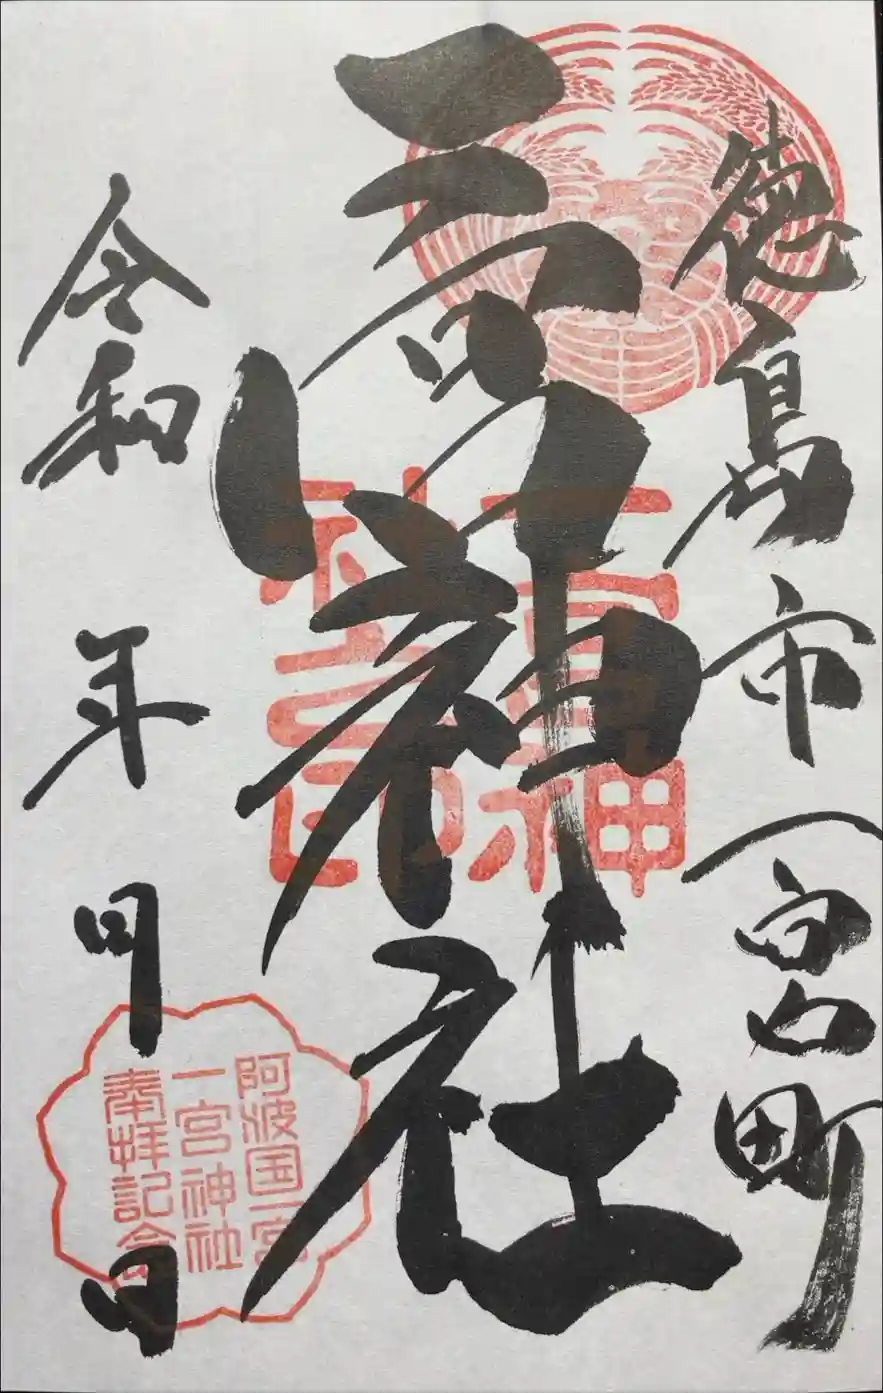 徳島市一宮町
一宮神社
一宮神
社之印
令和 年 月 日
阿波国一宮
一宮神社
奉拝記念